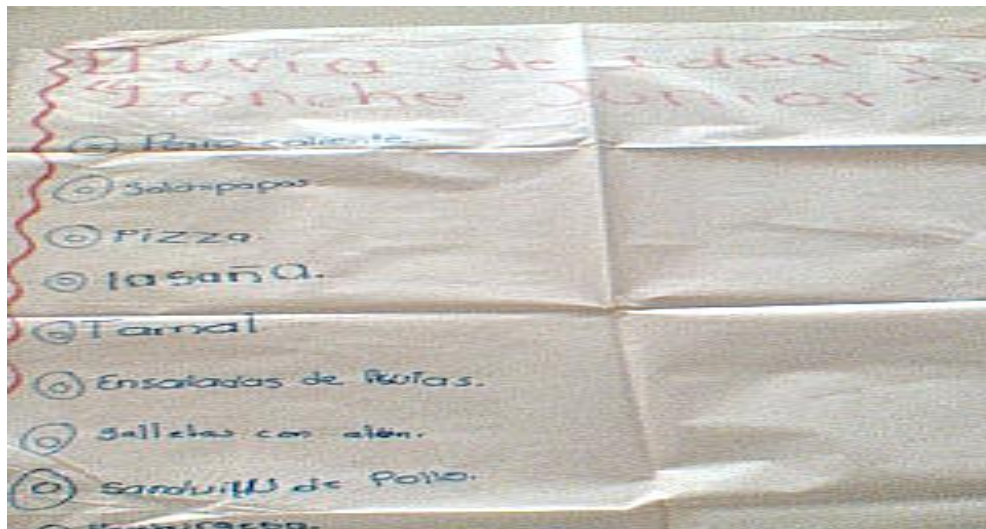 Lluvia de Ideas
Lonche Junior
Perro caliente.
Salchipapas
Pizza.
lasaña.
Tamal
Ensaladas de Frutas.
galletas con atún.
Sandwills de Pollo.